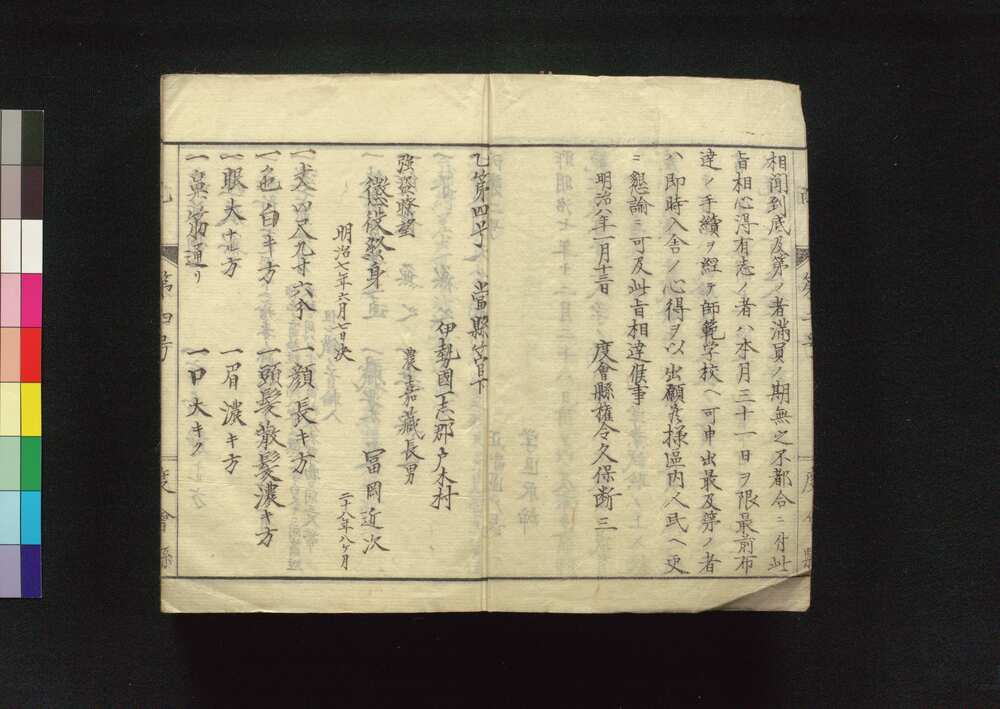 相聞到底及第ノ者滿員ノ期無之不都合ニ付此
旨相心得有志ノ者ハ本月三十一日ヲ限最前布
達ノ手續ヲ經テ師範学校ヘ可申出最及第ノ者
ハ即時入舎ノ心得ヲ以出願候様區内人民ヘ更
ニ懇諭ニ可及此旨相達候事
明治八年一月十三日 度會縣權令久保断三
乙第四号 當縣管下
伊勢國一志郡戸木村
農嘉藏長男
強盗
懲役終身 冨岡近次
二十八年八ケ月
明治七年六月七日決
一丈四尺九寸六分 一顔長キ方
一色白キ方 一頭髪散髪濃キ方
一眼大ナル方 一眉濃キ方
一鼻筋通リ 一口大キク
第四号 度會縣